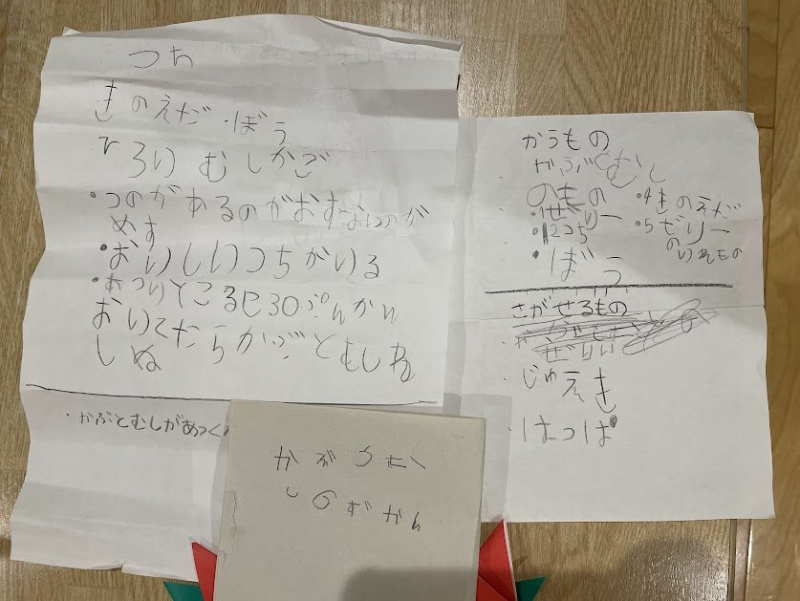 つち
きのえだ ぼう
ひろい むしかご
・つのがあるのがおすないのが
めす
・おいしいつちがいる
・あついところに30ぷんかん
おいてたらかぶとむしわ
しぬ
・かぶとむしがあつく
かうもの
かぶとむし
のもの
・1ぜりー
・2つち
・ぼう
・4きのえだ
・5ゼリー
のいれもの
さがせるもの
ぜりい
・じゅえき
・はっぱ
かぶとむ
しのずかん